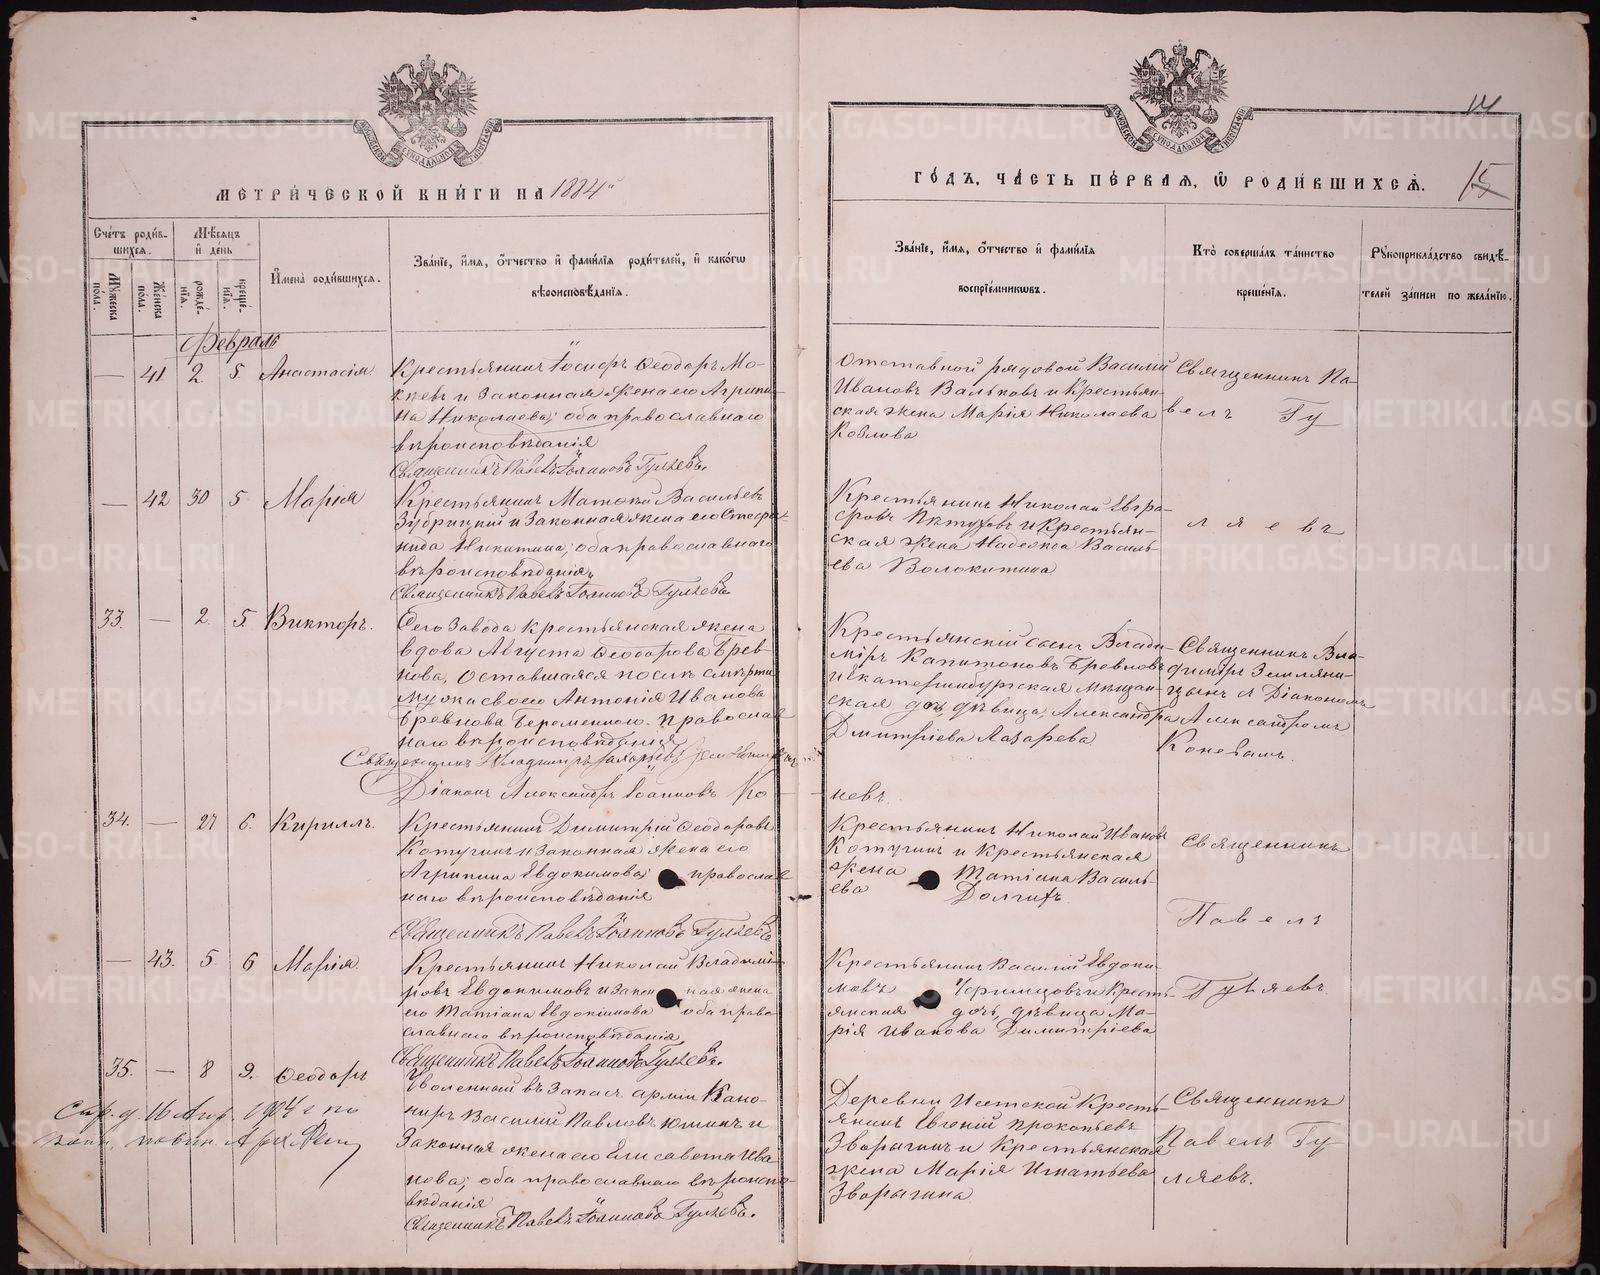 МЕТРИ́ЧЕСКОЙ КНИ́ГИ НА 1884й
ГО́ДЪ, ЧА́СТЬ ПЕ́РВАЯ, Ѽ РОДИ́ВШИХСѦ.
14
15
Сче́тъ роди́в-
шихся.
Мѣ́сяцъ
и҆ де́нь
Мꙋжеска
по́ла.
Же́нска
по́ла.
рожде́-
нїя.
креще́-
нїя.
И҆мена̀ роди́вшихся.
Зва́нїе, и҆́мя, ѻ҆́тчество и҆ фами́лїя роди́телей, и҆ како́гѡ
вѣроисповѣ́данїя.
Зва́нїе, и҆́мя, ѻ҆́тчество и҆ фами́лїя
воспрїе́мникѡвъ.
Кто̀ соверша́лъ та́инство
креще́нїя.
Рꙋкоприкла́дство свидѣ́-
телей за́писи по жела́нїю.
Февраль
— 41 2 5 Анастасія
Крестьянинъ Іосифъ Ѳеодоръ Мо-
кѣевъ и Законная жена его Агрипи-
на Николаева; оба православнаго
вѣроисповѣданія
Священникъ Павелъ Іоанновъ Гуляевъ.
Отставной рядовой Василій
Ивановъ Вальковъ и Крестьян-
ская жена Марія Николаева
Козлова
Священникъ Па-
велъ Гу
— 42 30 5 Марія
Крестьянинъ Матѳей Васильевъ
Зубрицкій и Законная жена его Стефа-
нида Никитина; оба православнаго
вѣроисповѣданія,
Священникъ Павелъ Іоанновъ Гуляевъ.
Крестьянинъ Николай Евгра-
фовъ Пѣтуховъ и Крестьян-
ская жена Надежда Василь-
ева Волокитина
ляевъ
33. — 2. 5. Викторъ.
Сего Завода крестьянская жена
вдова Августа Ѳеодорова Брев-
нова, оставшаяся послѣ смерти
мужа своего Антонія Иванова
Бревнова беременною. Православ
наго вѣроисповѣданія
Священникъ Владимиръ
Діаконъ Александръ Іоанновъ Ко-
невъ.
Крестьянскій сынъ Влади-
міръ Капитоновъ Бревновъ
и Екатеринбургская Мѣщан-
ская дочь дѣвица, Александра
Дмитріева Лазарева
Священникъ Вла-
димиръ Земляни-
цынъ съ Діакономъ
Александромъ
Коневымъ.
34. — 27 6. Кириллъ.
Крестьянинъ Димитрій Ѳеодоровъ
Котугинъ и законная жена его
Агрипина Евдокимова; православ-
наго вѣроисповѣданія
Священникъ Павелъ Іоанновъ Гуляевъ
Крестьянинъ Николай Ивановъ
Котугинъ и Крестьянская
жена Татіана Василь-
ева Долгихъ.
Священникъ
Павелъ
— 43. 5. 6 Марія.
Крестьянинъ Николай Владимі-
ровъ Евдокимовъ и Законная жена
его Татіана Евдокимова оба право
славнаго вѣроисповѣданія
Священникъ Павелъ Іоанновъ Гуляевъ.
Крестьянинъ Василій Евдоки-
мовъ и Кресть-
янская дочь, дѣвица Ма-
рія Иванова Димитріева
Гуляевъ.
35. — 8 9. Ѳеодоръ
Уволенный въ Запасъ арміи Кано-
ниръ Василій Павловъ Юшинъ и
Законная жена его Елисавета Ива
нова; оба православнаго вѣроиспо-
вѣданія
Священникъ Павелъ Іоанновъ Гуляевъ.
Деревни Исетской Кресть-
янинъ Евгеній Прокопьевъ
Зворыгинъ и Крестьянская
жена Марія Игнатьева
Зворыгина
Священникъ
Павелъ Гу
ляевъ.
METRIKI.GASO-URAL.RU